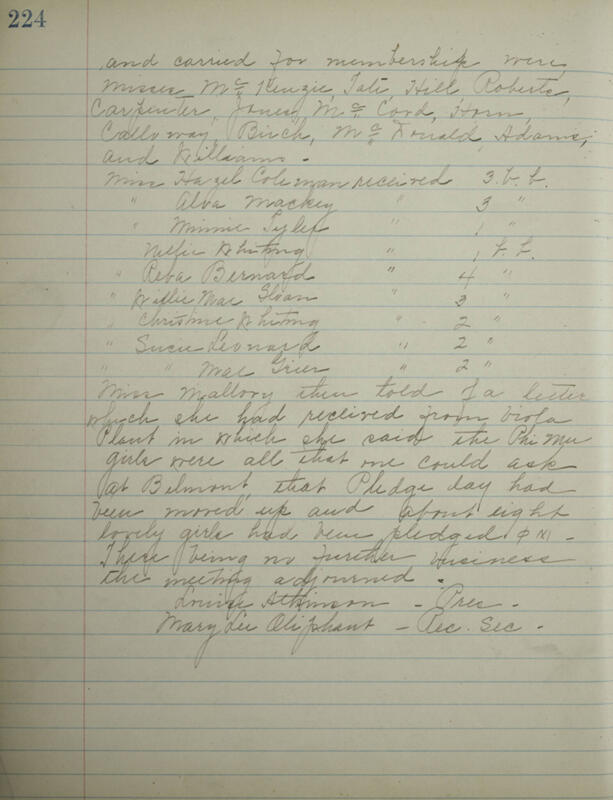 224
and carried for membership were,
Misses, Mc Kenzie, Tate, Hill Roberts,
Carpenter, Jones, Mc Cord, Horn,
Calloway, Birch, Mc Donald, Adams,
and Williams.
Miss Hazel Coleman received 3. b. b.
" Alva Mackey " 3 "
" Minnie Tyler " 1 "
Nellie Whiting " 1 b. b.
" Reba Bernard " 4 "
" Willie Mae Sloan " 3 "
" Christine Whiting " 2 "
" Sucie Leonard " 2 "
" " Mae Grier " 2 "
Miss Mallory then told of a letter
which she had received from Viola
Plant in which she said the Phi Mu
girls were all that one could ask
at Belmont, that Pledge day had
been moved up and about eight
lovely girls had been pledged Φ M -
There being no further business
the meeting adjourned.
Louise Atkinson - Pres -
Mary Lee Oliphant - Rec. Sec -